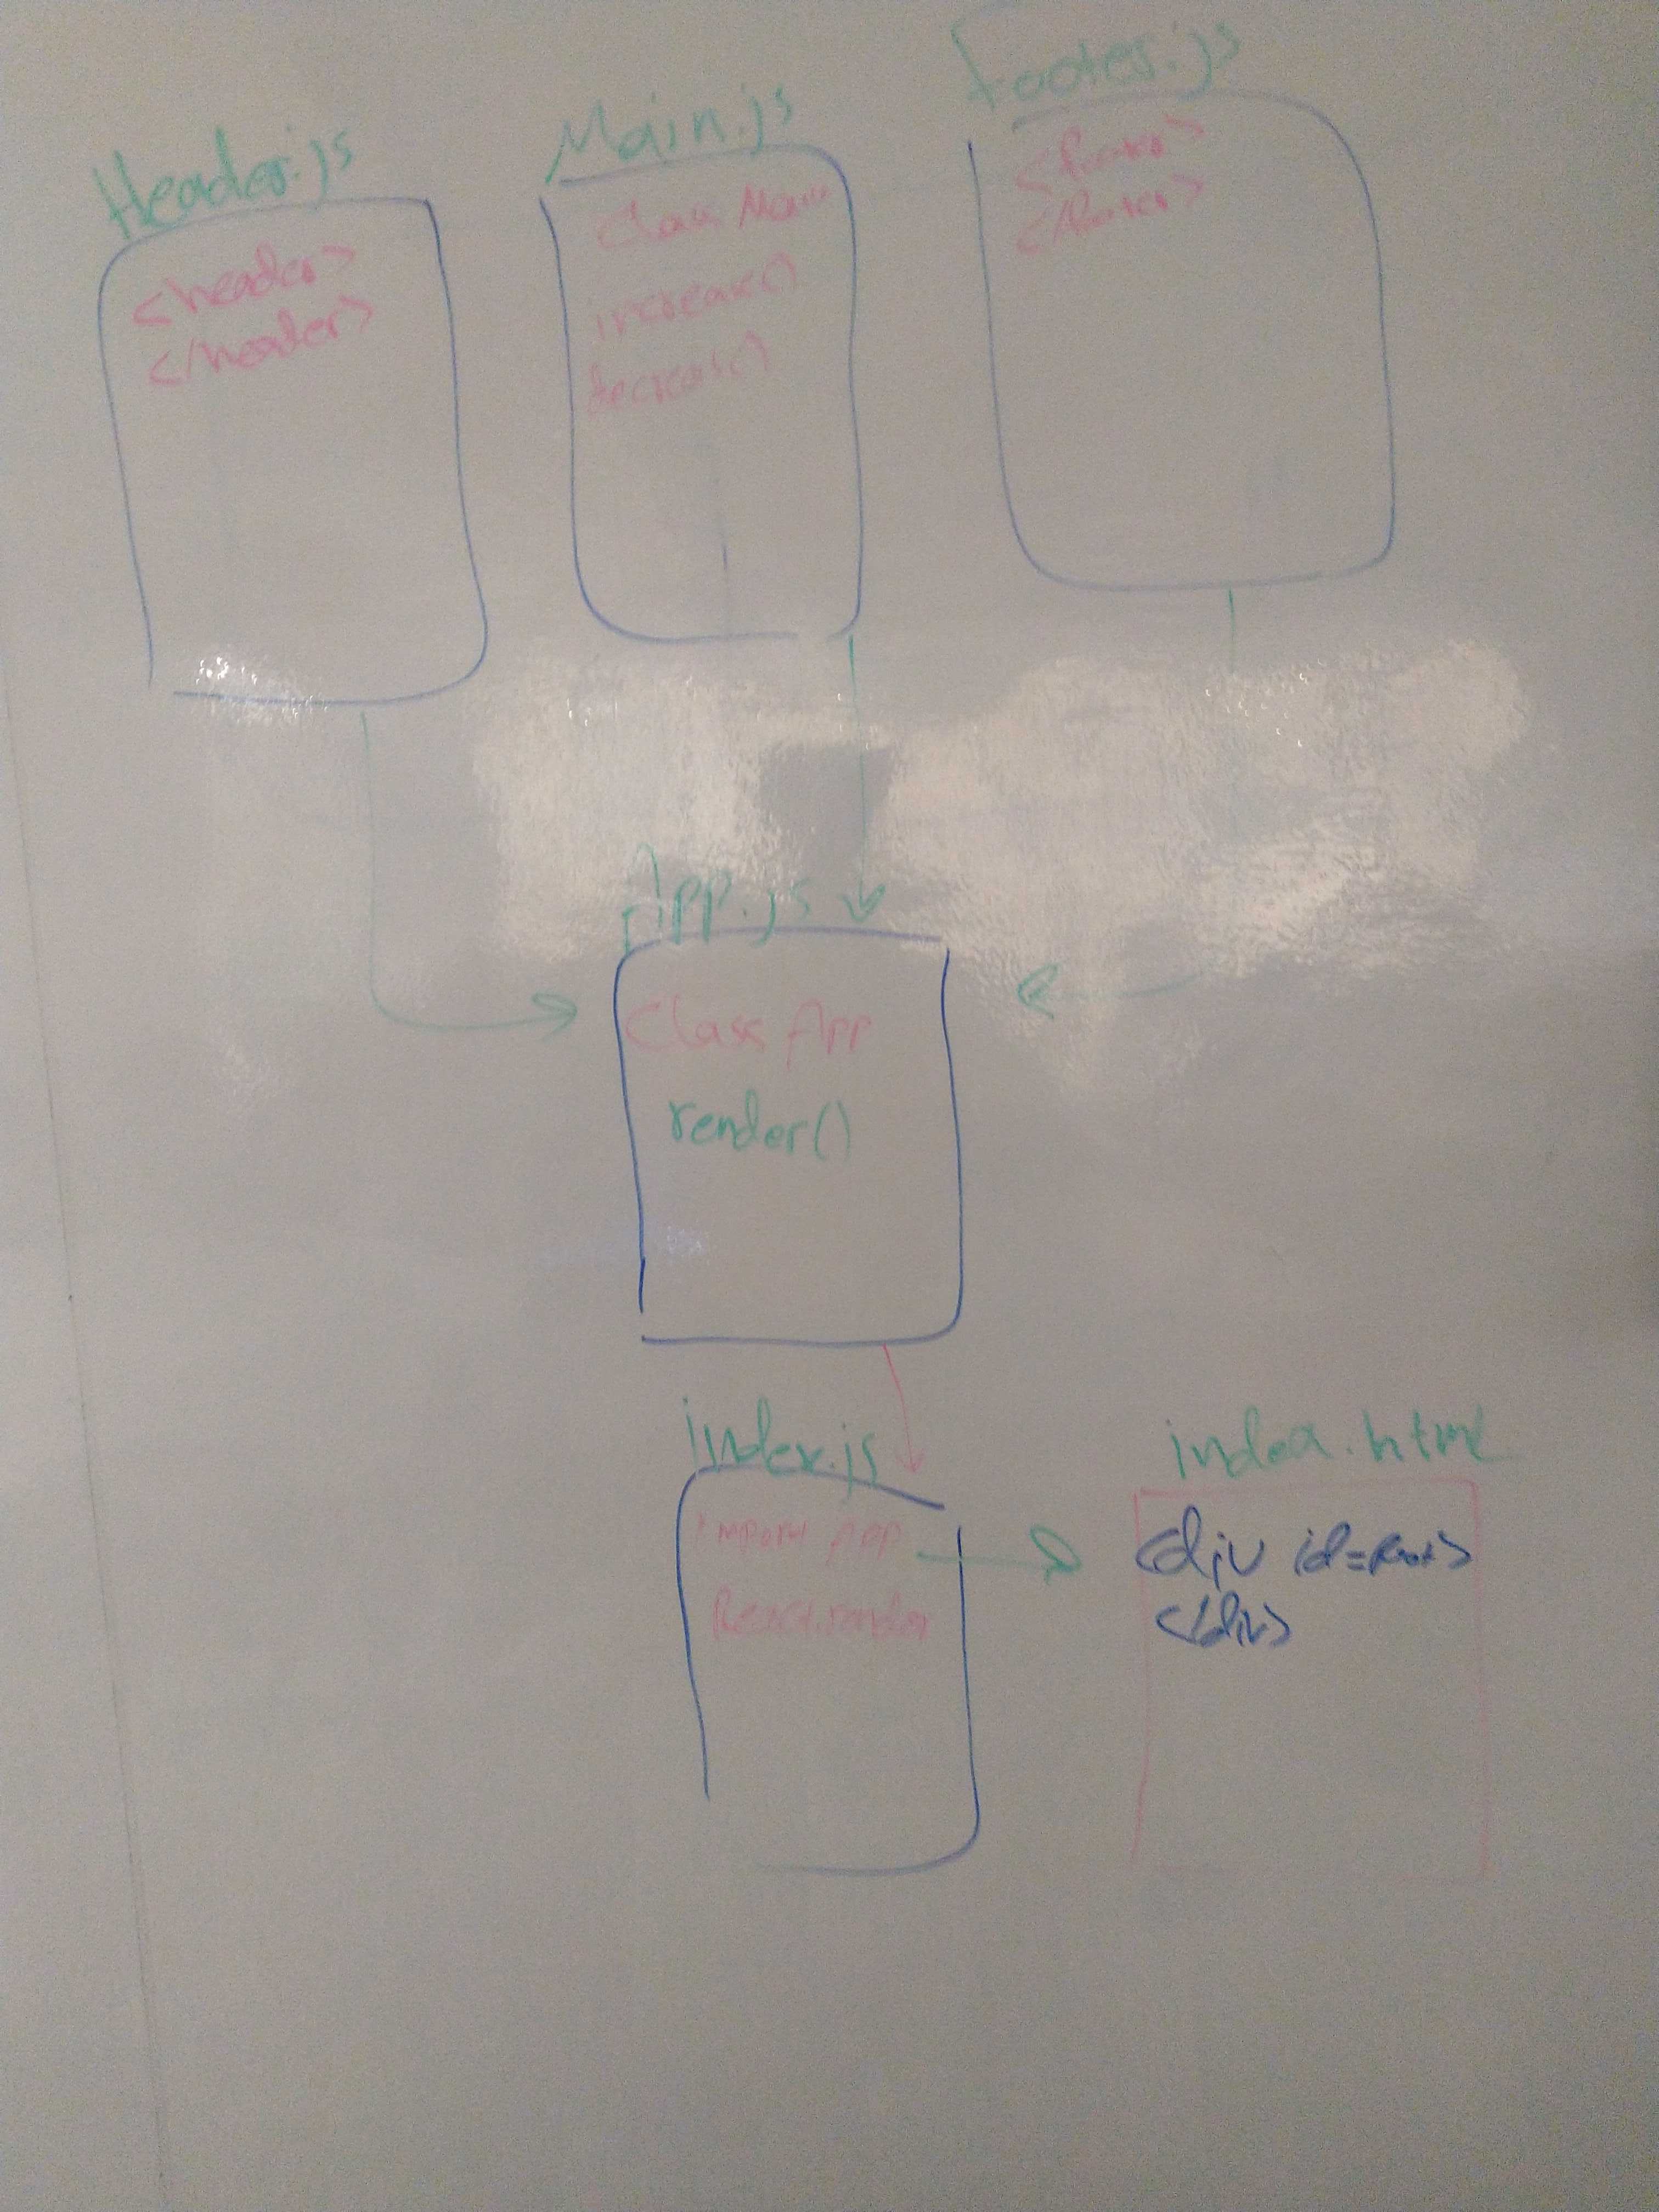 Header.js
<header>
</header>
Main.js
Class Main
increase()
decrease()
Footer.js
<footer>
</footer>
App.js
Class App
render()
index.js
import App
React.render
index.html
<div id=root>
</div>